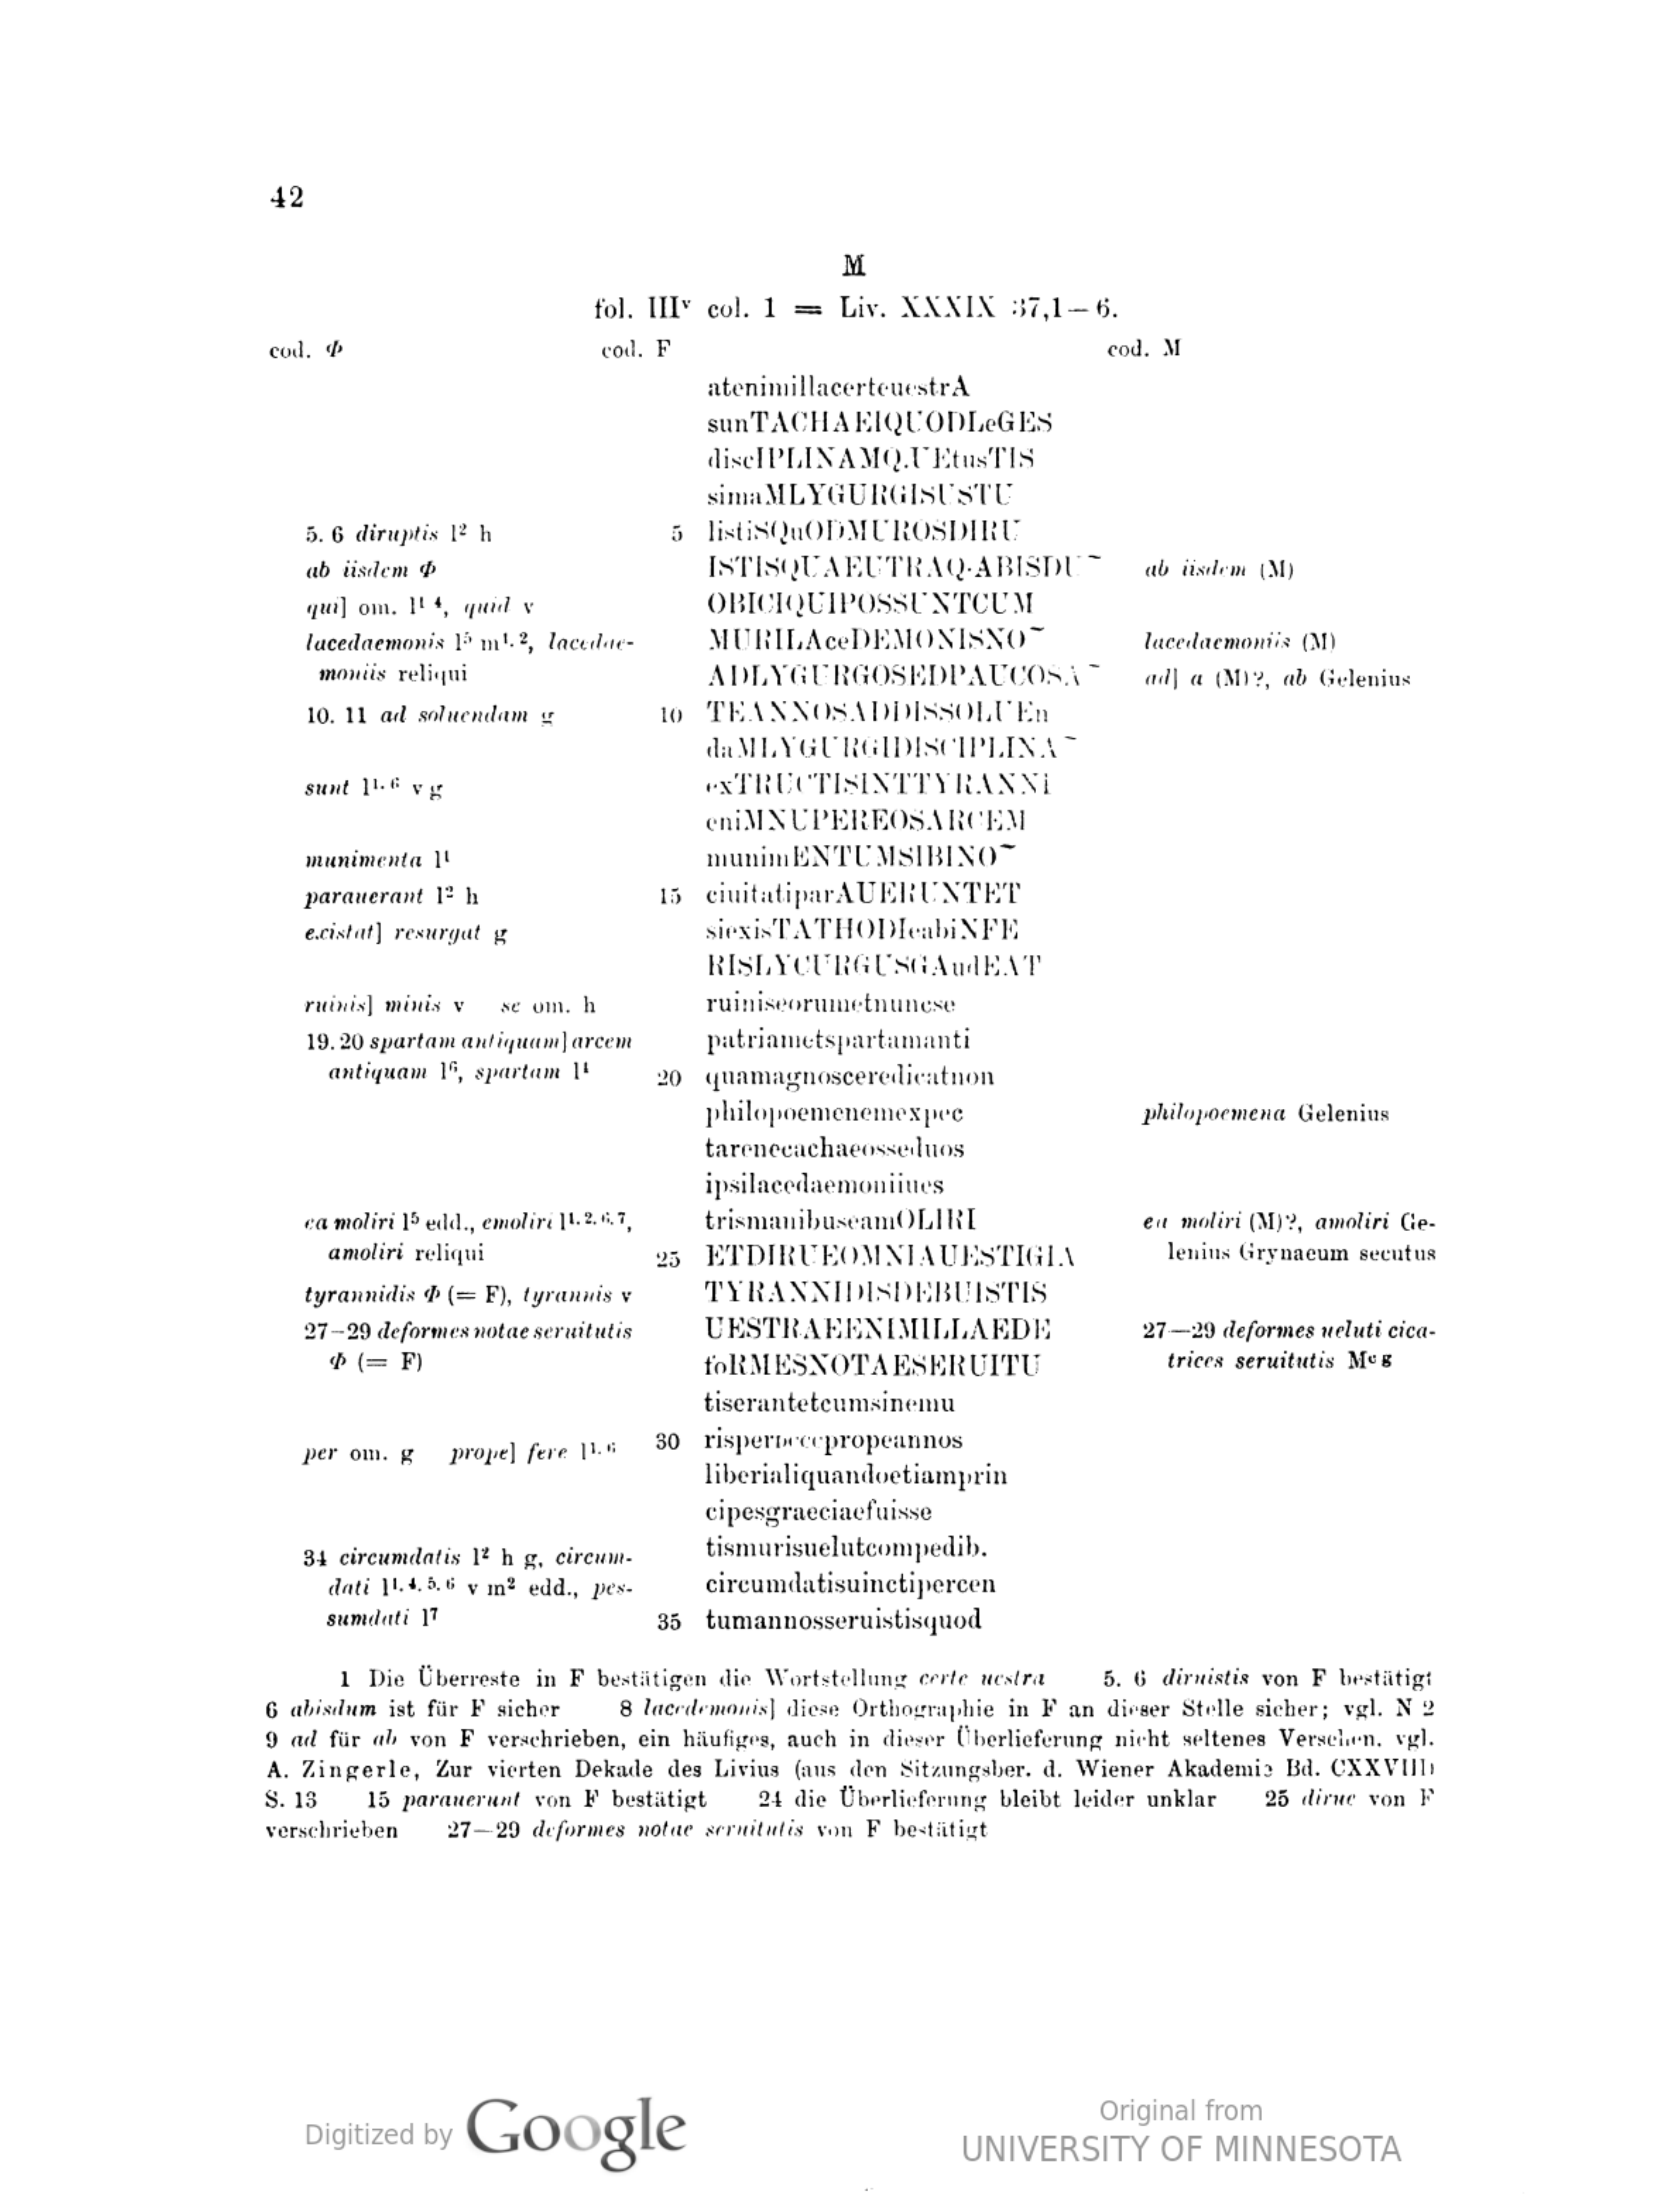 42
M
fol. IIIv col. 1 = Liv. XXXIX 37,1—6.
cod. Φ cod. F cod. M
atenimillacerteuestrA
sunTACHAEIQUODLeGES
discIPLINAMQ.UEtusTIS
simaMLYGURGISUSTU
5. 6 diruptis l2 h 5 listiSQuODMUROSDIRU
ab iisdem Φ ISTISQUAEUTRAQ·ABISDU¯ ab iisdem (M)
qui] om. l1 4, quid v OBICIQUIPOSSUNTCUM
lacedaemonis l5 m1. 2, lacedae- MURILAceDEMONISNO¯ lacedaemoniis (M)
moniis reliqui ADLYGURGOSEDPAUCOSA¯ ad] a (M)?, ab Gelenius
10. 11 ad soluendam g 10 TEANNOSADDISSOLUEn
daMLYGURGIDISCIPLINA¯
sunt l1. 6 v g exTRUCTISINTTYRANNI
eniMNUPEREOSARCEM
munimenta l1 munimENTUMSIBINO¯
parauerant l2 h 15 ciuitatiparAUERUNTET
existat] resurgat g siexisTATHODIeabiNFE
RISLYCURGUSGAudEAT
ruinis] minis v se om. h ruiniseorumetnuncse
19. 20 spartam antiquam] arcem patriametspartamanti
antiquam l6, spartam l1 20 quamagnosceredicatnon
philopoemenemexpec philopoemena Gelenius
tarenecachaeosseduos
ipsilacedaemoniiues
ea moliri l5 edd., emoliri l1. 2. 6. 7, trismanibuseamOLIRI ea moliri (M)?, amoliri Ge-
amoliri reliqui 25 ETDIRUEOMNIAUESTIGIA lenius Grynaeum secutus
tyrannidis Φ (= F), tyrannis v TYRANNIDISDEBUISTIS
27—29 deformes notae seruitutis UESTRAEENIMILLAEDE 27—29 deformes ueluti cica-
Φ (= F) foRMESNOTAESERUITU trices seruitutis Mc g
tiserantetcumsinemu
per om. g prope] fere l1. 6 30 risperdcccpropeannos
liberialiquandoetiamprin
cipesgraeciaefuisse
tismurisuelutcompedib.
34 circumdatis l2 h g, circum- circumdatisuinctipercen
dati l1. 4. 5. 6 v m2 edd., pes-
sumdati l7 35 tumannosseruistisquod
1 Die Überreste in F bestätigen die Wortstellung certe uestra 5. 6 diruistis von F bestätigt
6 abisdum ist für F sicher 8 lacedemonis] diese Orthographie in F an dieser Stelle sicher; vgl. N 2
9 ad für ab von F verschrieben, ein häufiges, auch in dieser Überlieferung nicht seltenes Versehen. vgl.
A. Zingerle, Zur vierten Dekade des Livius (aus den Sitzungsber. d. Wiener Akademie Bd. CXXVIII)
S. 13 15 parauerunt von F bestätigt 24 die Überlieferung bleibt leider unklar 25 dirue von F
verschrieben 27—29 deformes notae seruitutis von F bestätigt
Digitized by Google
Original from
UNIVERSITY OF MINNESOTA